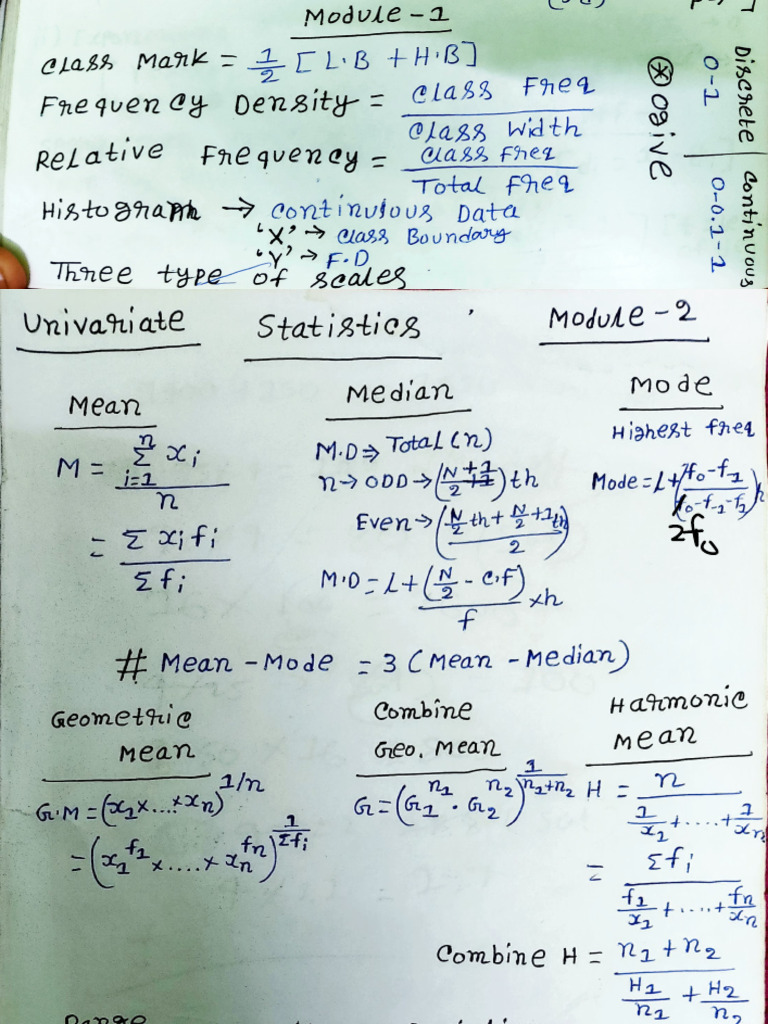 Module-1
Class Mark = 1/2 [L.B + H.B]
Frequency Density = Class Freq / Class Width
Relative Frequency = Class Freq / Total Freq
Histograph → Continuious Data
'X' → Class Boundary
'Y' → F.D
Three type of scales
⊛ ogive
Discrete | Continuous
0-1 | 0-0.1-1
Univariate Statistics Module-2
Mean
M = Σ_{i=1}^{n} xi / n
= Σ xi fi / Σ fi
Median
M.D ⇒ Total (n)
n → ODD → (N+1 / 2) th
Even → (N/2 th + N/2 + 1 th / 2)
M.D = l + (N/2 - c.f) / f × h
Mode
Highest freq
Mode = l + (f0 - f1 / 2f0 - f-1 - f1) h
# Mean - Mode = 3 (Mean - Median)
Geometric
Mean
G.M = (x1 × ... × xn)^1/n
= (x1^f1 × ..... × xn^fn)^1/Σfi
Combine
Geo. Mean
G = (G1^n1 . G2^n2)^1/n1+n2
Harmonic
Mean
H = n / 1/x1 + .... + 1/xn
= Σfi / f1/x1 + .... + fn/xn
Combine H = n1 + n2 / H1/n1 + H2/n2
Range